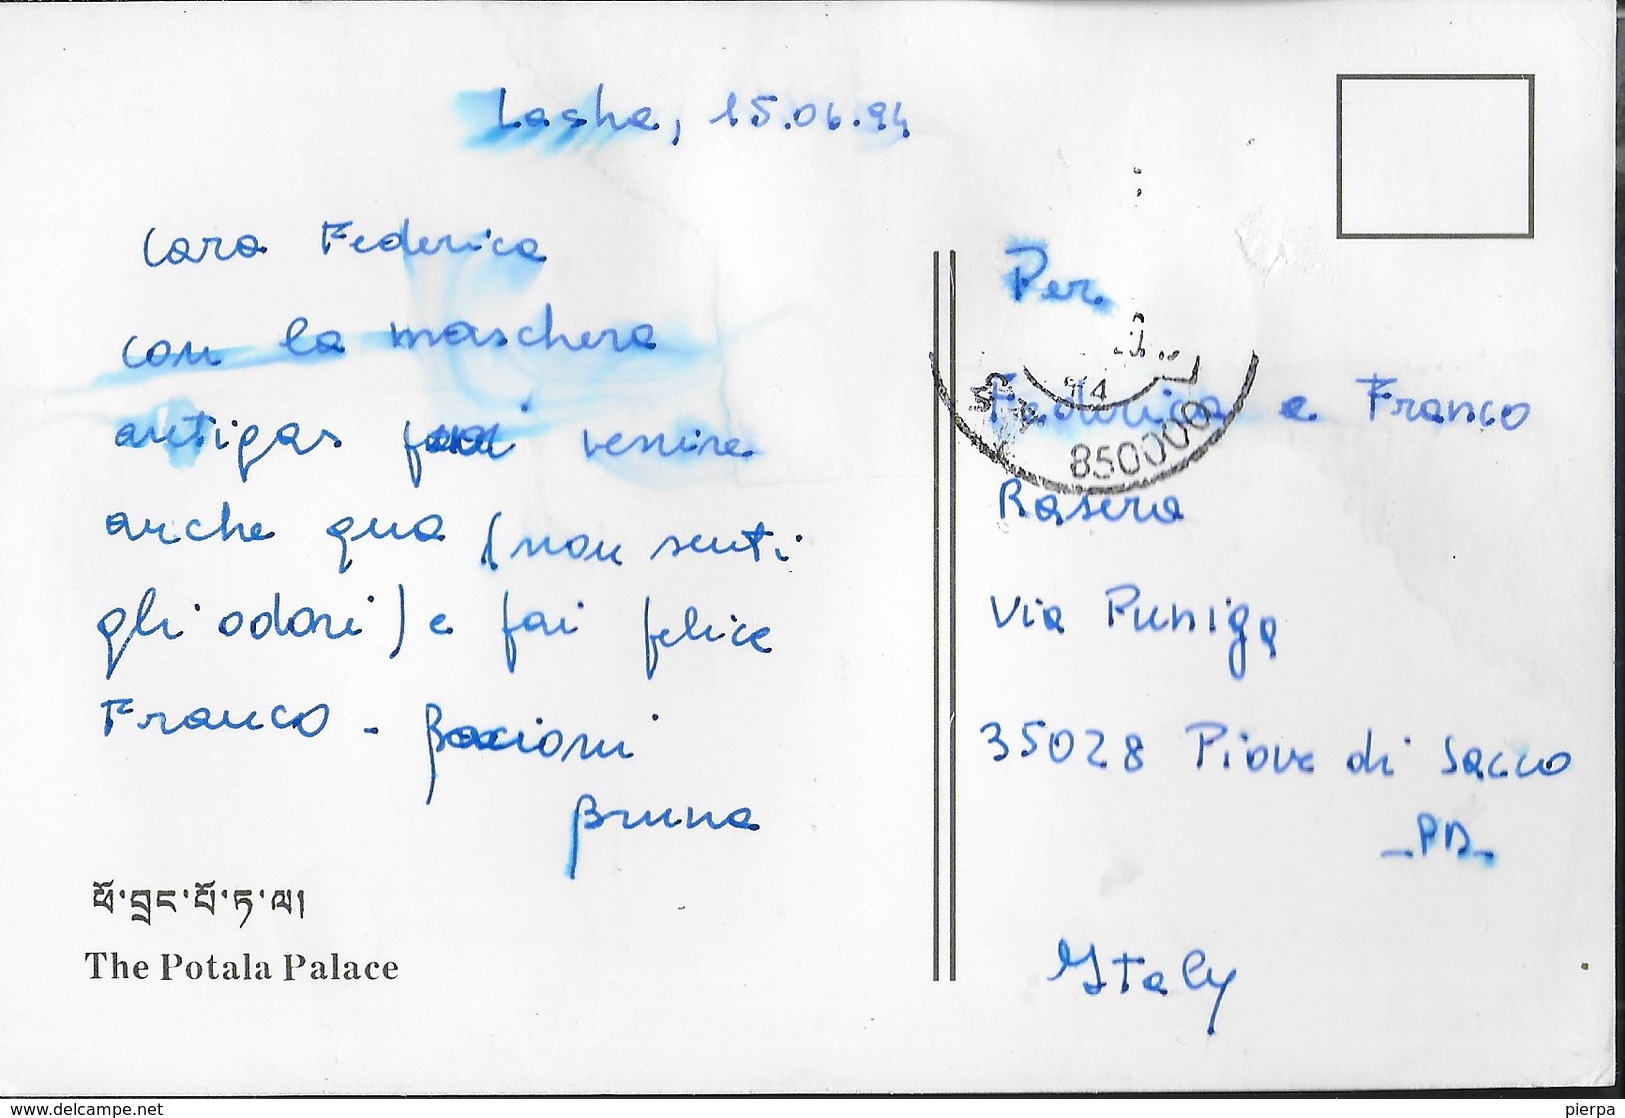 Lasha, 15.06.94
Cara Federica
con la maschera
antigas puoi venire
anche qua (non senti
gli odori) e fai felice
Franco - Bacioni
Bruna
ཕོ་བྲང་པོ་ཏ་ལ།
The Potala Palace
Per
Federica e Franco
850000
Rasera
Via Puniga
35028 Piove di Sacco
-PD-
Italy
delcampe.net
pierpa